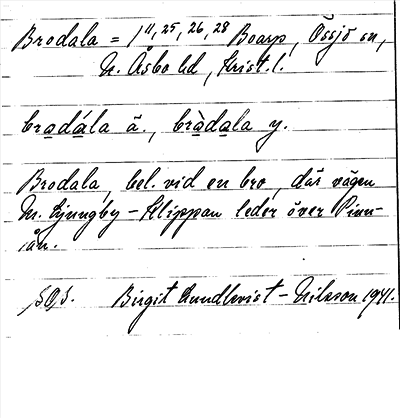 Brodala = 1¹¹, ²⁵, ²⁶, ²⁸ Boarp, Össjö sn,
N. Åsbo hd, Krist. l.
bradá̲la ä., brà̲da̲la y.
Brodala, bel. vid en bro, där vägen
M. Ljungby – Klippan leder över Pinn-
ån.
SOS. Birgit Lundkvist – Nilsson 1941.